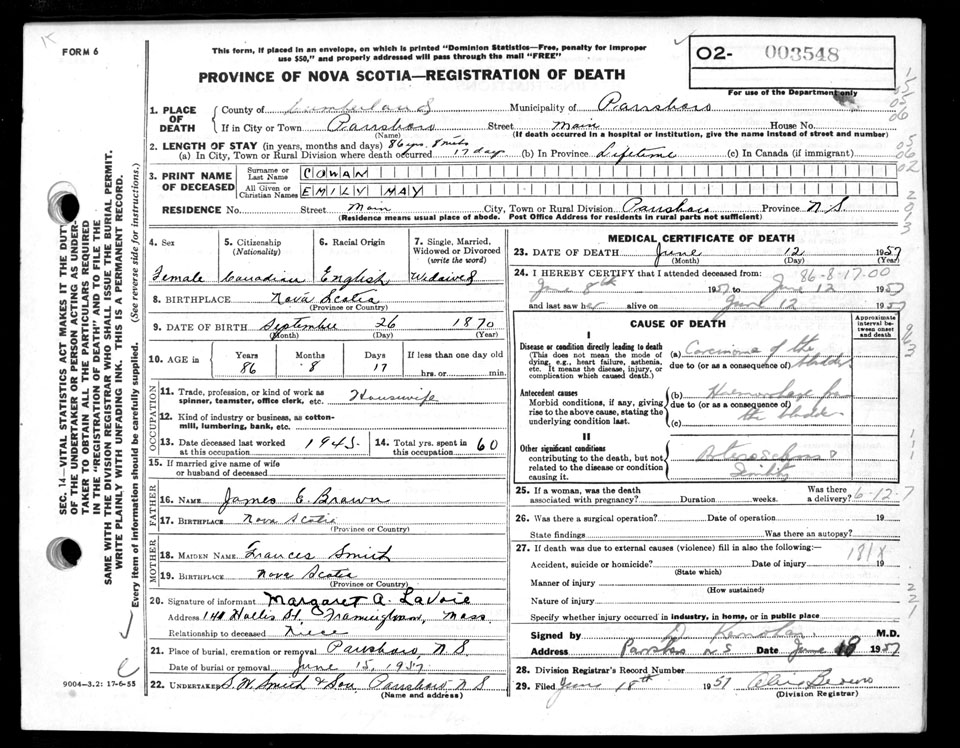 FORM 6
This form, if placed in an envelope, on which is printed "Dominion Statistics—Free, penalty for improper
use $50," and properly addressed will pass through the mail "FREE"
PROVINCE OF NOVA SCOTIA—REGISTRATION OF DEATH
O2- 003548
For use of the Department only
1. PLACE OF DEATH
County of Cumberland Municipality of Parrsboro
If in City or Town Parrsboro Street Main House No.
(Name) (If death occurred in a hospital or institution, give the name instead of street and number)
2. LENGTH OF STAY (in years, months and days) 86 yrs. 8 mths
(a) In City, Town or Rural Division where death occurred 17 days (b) In Province Lifetime (c) In Canada (if immigrant)
3. PRINT NAME OF DECEASED
Surname or Last Name COWAN
All Given or Christian Names EMILY MAY
RESIDENCE No. Street Main City, Town or Rural Division Parrsboro Province N.S.
(Residence means usual place of abode. Post Office Address for residents in rural parts not sufficient)
4. Sex 5. Citizenship (Nationality) 6. Racial Origin 7. Single, Married, Widowed or Divorced (write the word)
Female Canadian English Widowed
8. BIRTHPLACE Nova Scotia
(Province or Country)
9. DATE OF BIRTH September 26 1870
(Month) (Day) (Year)
10. AGE in Years Months Days If less than one day old
86 8 17 hrs. or min.
OCCUPATION
11. Trade, profession, or kind of work as spinner, teamster, office clerk, etc. Housewife
12. Kind of industry or business, as cotton-mill, lumbering, bank, etc.
13. Date deceased last worked at this occupation 1945. 14. Total yrs. spent in this occupation 60
15. If married give name of wife or husband of deceased
FATHER
16. NAME James E. Brown
17. BIRTHPLACE Nova Scotia
(Province or Country)
MOTHER
18. MAIDEN NAME Frances Smith
19. BIRTHPLACE Nova Scotia
(Province or Country)
20. Signature of informant Margaret A. LaVoie
Address Hollis St. Framingham, Mass.
Relationship to deceased Niece
21. Place of burial, cremation or removal Parrsboro, N.S.
Date of burial or removal June 15, 1957
22. UNDERTAKER S.W. Smith & Son, Parrsboro N.S
(Name and address)
MEDICAL CERTIFICATE OF DEATH
23. DATE OF DEATH June 12 1957
(Month) (Day) (Year)
86-8-17.00
24. I HEREBY CERTIFY that I attended deceased from:
June 8th 1957 to June 12 1957
and last saw her alive on June 12 1957
CAUSE OF DEATH
Approximate interval between onset and death
I
Disease or condition directly leading to death
(This does not mean the mode of dying, e.g., heart failure, asthenia, etc. It means the disease, injury, or complication which caused death.)
(a) Carcinoma of the bladder
due to (or as a consequence of)
Antecedent causes
Morbid conditions, if any, giving rise to the above cause, stating the underlying condition last.
(b) Haemorrhage from
due to (or as a consequence of)
the bladder
(c)
II
Other significant conditions
contributing to the death, but not related to the disease or condition causing it.
Senility
25. If a woman, was the death associated with pregnancy? Duration weeks. Was there a delivery?
6-12-7
26. Was there a surgical operation? Date of operation 19
State findings Was there an autopsy?
27. If death was due to external causes (violence) fill in also the following:—
181X
Accident, suicide or homicide? Date of injury 19
(State which)
Manner of injury
(How sustained)
Nature of injury
Specify whether injury occurred in industry, in home, or in public place
Signed by M.D.
Address Parrsboro N S Date June 1957
28. Division Registrar's Record Number
29. Filed June 18th 1957
(Division Registrar)
SEC. 14—VITAL STATISTICS ACT MAKES IT THE DUTY
OF THE UNDERTAKER OR PERSON ACTING AS UNDER-
TAKER TO OBTAIN ALL THE PARTICULARS REQUIRED
IN THE "REGISTRATION OF DEATH" AND TO FILE THE
SAME WITH THE DIVISION REGISTRAR WHO SHALL ISSUE THE BURIAL PERMIT.
WRITE PLAINLY WITH UNFADING INK. THIS IS A PERMANENT RECORD.
Every item of information should be carefully supplied. (See reverse side for instructions.)
9004—3.2: 17-6-55